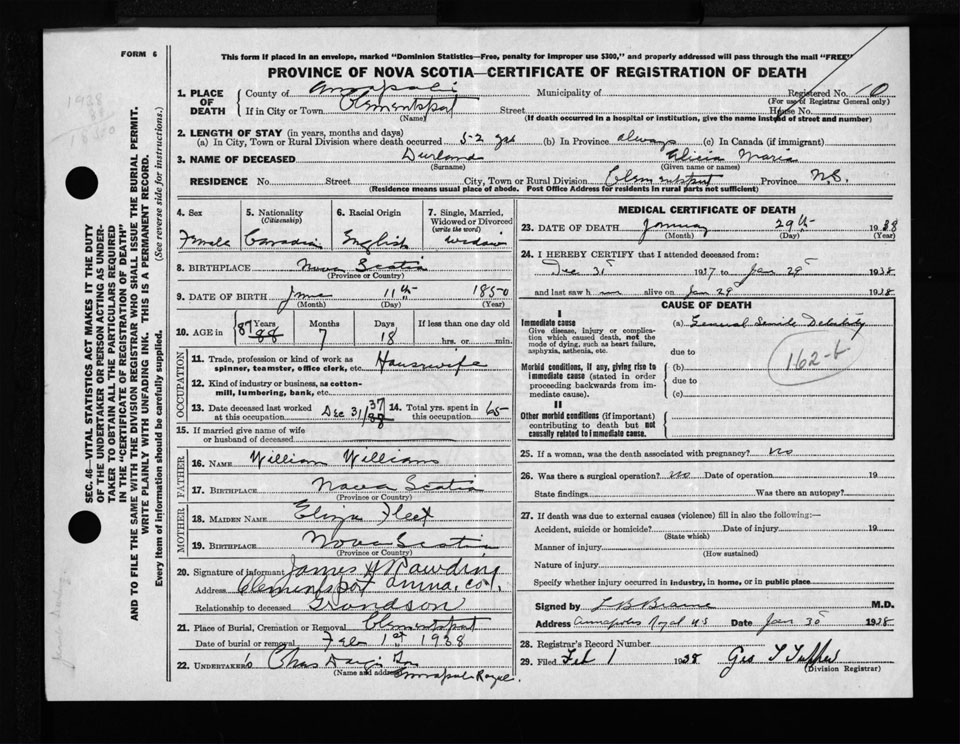 FORM 6
This form if placed in an envelope, marked "Dominion Statistics—Free, penalty for improper use $300," and properly addressed will pass through the mail "FREE"
PROVINCE OF NOVA SCOTIA—CERTIFICATE OF REGISTRATION OF DEATH
1. PLACE OF DEATH
County of Annapolis Municipality of Registered No. 10
(For use of Registrar General only)
If in City or Town Clementsport Street House No.
(Name) (If death occurred in a hospital or institution, give the name instead of street and number)
2. LENGTH OF STAY (in years, months and days)
(a) In City, Town or Rural Division where death occurred 52 yrs (b) In Province always (c) In Canada (if immigrant)
3. NAME OF DECEASED Durland Alicia Maria
(Surname) (Given name or names)
RESIDENCE No. Street City, Town or Rural Division Clementsport Province N.S.
(Residence means usual place of abode. Post Office Address for residents in rural parts not sufficient)
4. Sex
Female
5. Nationality
(Citizenship)
Canadian
6. Racial Origin
English
7. Single, Married, Widowed or Divorced
(write the word)
widow
8. BIRTHPLACE Nova Scotia
(Province or Country)
9. DATE OF BIRTH June 11th 1850
(Month) (Day) (Year)
10. AGE in Years Months Days If less than one day old
87 88 7 18 hrs. or min.
OCCUPATION
11. Trade, profession or kind of work as spinner, teamster, office clerk, etc. Housewife
12. Kind of industry or business, as cotton-mill, lumbering, bank, etc.
13. Date deceased last worked at this occupation Dec 31/37 38
14. Total yrs. spent in this occupation 65
15. If married give name of wife or husband of deceased
FATHER
16. NAME William Williams
17. BIRTHPLACE Nova Scotia
(Province or Country)
MOTHER
18. MAIDEN NAME Eliza Fleet
19. BIRTHPLACE Nova Scotia
(Province or Country)
20. Signature of informant James H Rawding
Address Clementsport Anna. Co.
Relationship to deceased Grandson
21. Place of Burial, Cremation or Removal Clementsport
Date of burial or removal Feb 1st 1938
22. UNDERTAKER
(Name and address)
Annapolis Royal.
MEDICAL CERTIFICATE OF DEATH
23. DATE OF DEATH January 29th 1938
(Month) (Day) (Year)
24. I HEREBY CERTIFY that I attended deceased from:
Dec 31st 1937 to Jan 29th 1938
and last saw h alive on Jan 29 1938
CAUSE OF DEATH
I
Immediate cause
Give disease, injury or complication which caused death, not the mode of dying, such as heart failure, asphyxia, asthenia, etc.
(a) General Senile Debility
162-b
due to
Morbid conditions, if any, giving rise to immediate cause (stated in order proceeding backwards from immediate cause).
(b)
due to
(c)
II
Other morbid conditions (if important) contributing to death but not causally related to immediate cause.
25. If a woman, was the death associated with pregnancy? No
26. Was there a surgical operation? No Date of operation 19
State findings Was there an autopsy?
27. If death was due to external causes (violence) fill in also the following:—
Accident, suicide or homicide? Date of injury 19
(State which)
Manner of injury
(How sustained)
Nature of injury
Specify whether injury occurred in industry, in home, or in public place
Signed by L B Braine M.D.
Address Annapolis Royal N S Date Jan 30 1938
28. Registrar's Record Number
29. Filed Feb 1 1938 Geo T Tupper
(Division Registrar)
SEC. 46—VITAL STATISTICS ACT MAKES IT THE DUTY
OF THE UNDERTAKER OR PERSON ACTING AS UNDER-
TAKER TO OBTAIN ALL THE PARTICULARS REQUIRED
IN THE "CERTIFICATE OF REGISTRATION OF DEATH"
AND TO FILE THE SAME WITH THE DIVISION REGISTRAR WHO SHALL ISSUE THE BURIAL PERMIT.
WRITE PLAINLY WITH UNFADING INK. THIS IS A PERMANENT RECORD.
Every item of information should be carefully supplied. (See reverse side for instructions.)
1938